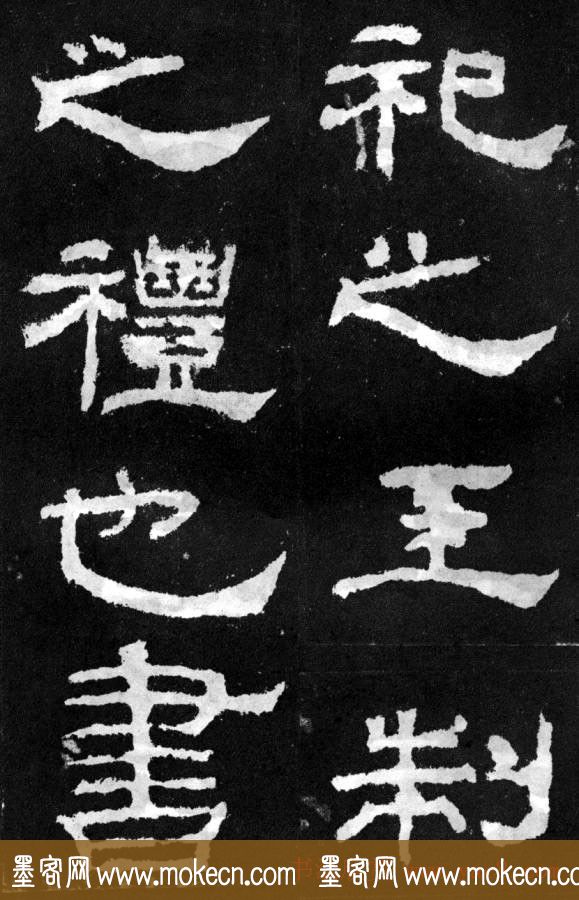 祀之王制
之禮也書
墨客网 www.mokecn.com 墨客网 www.mokecn.com